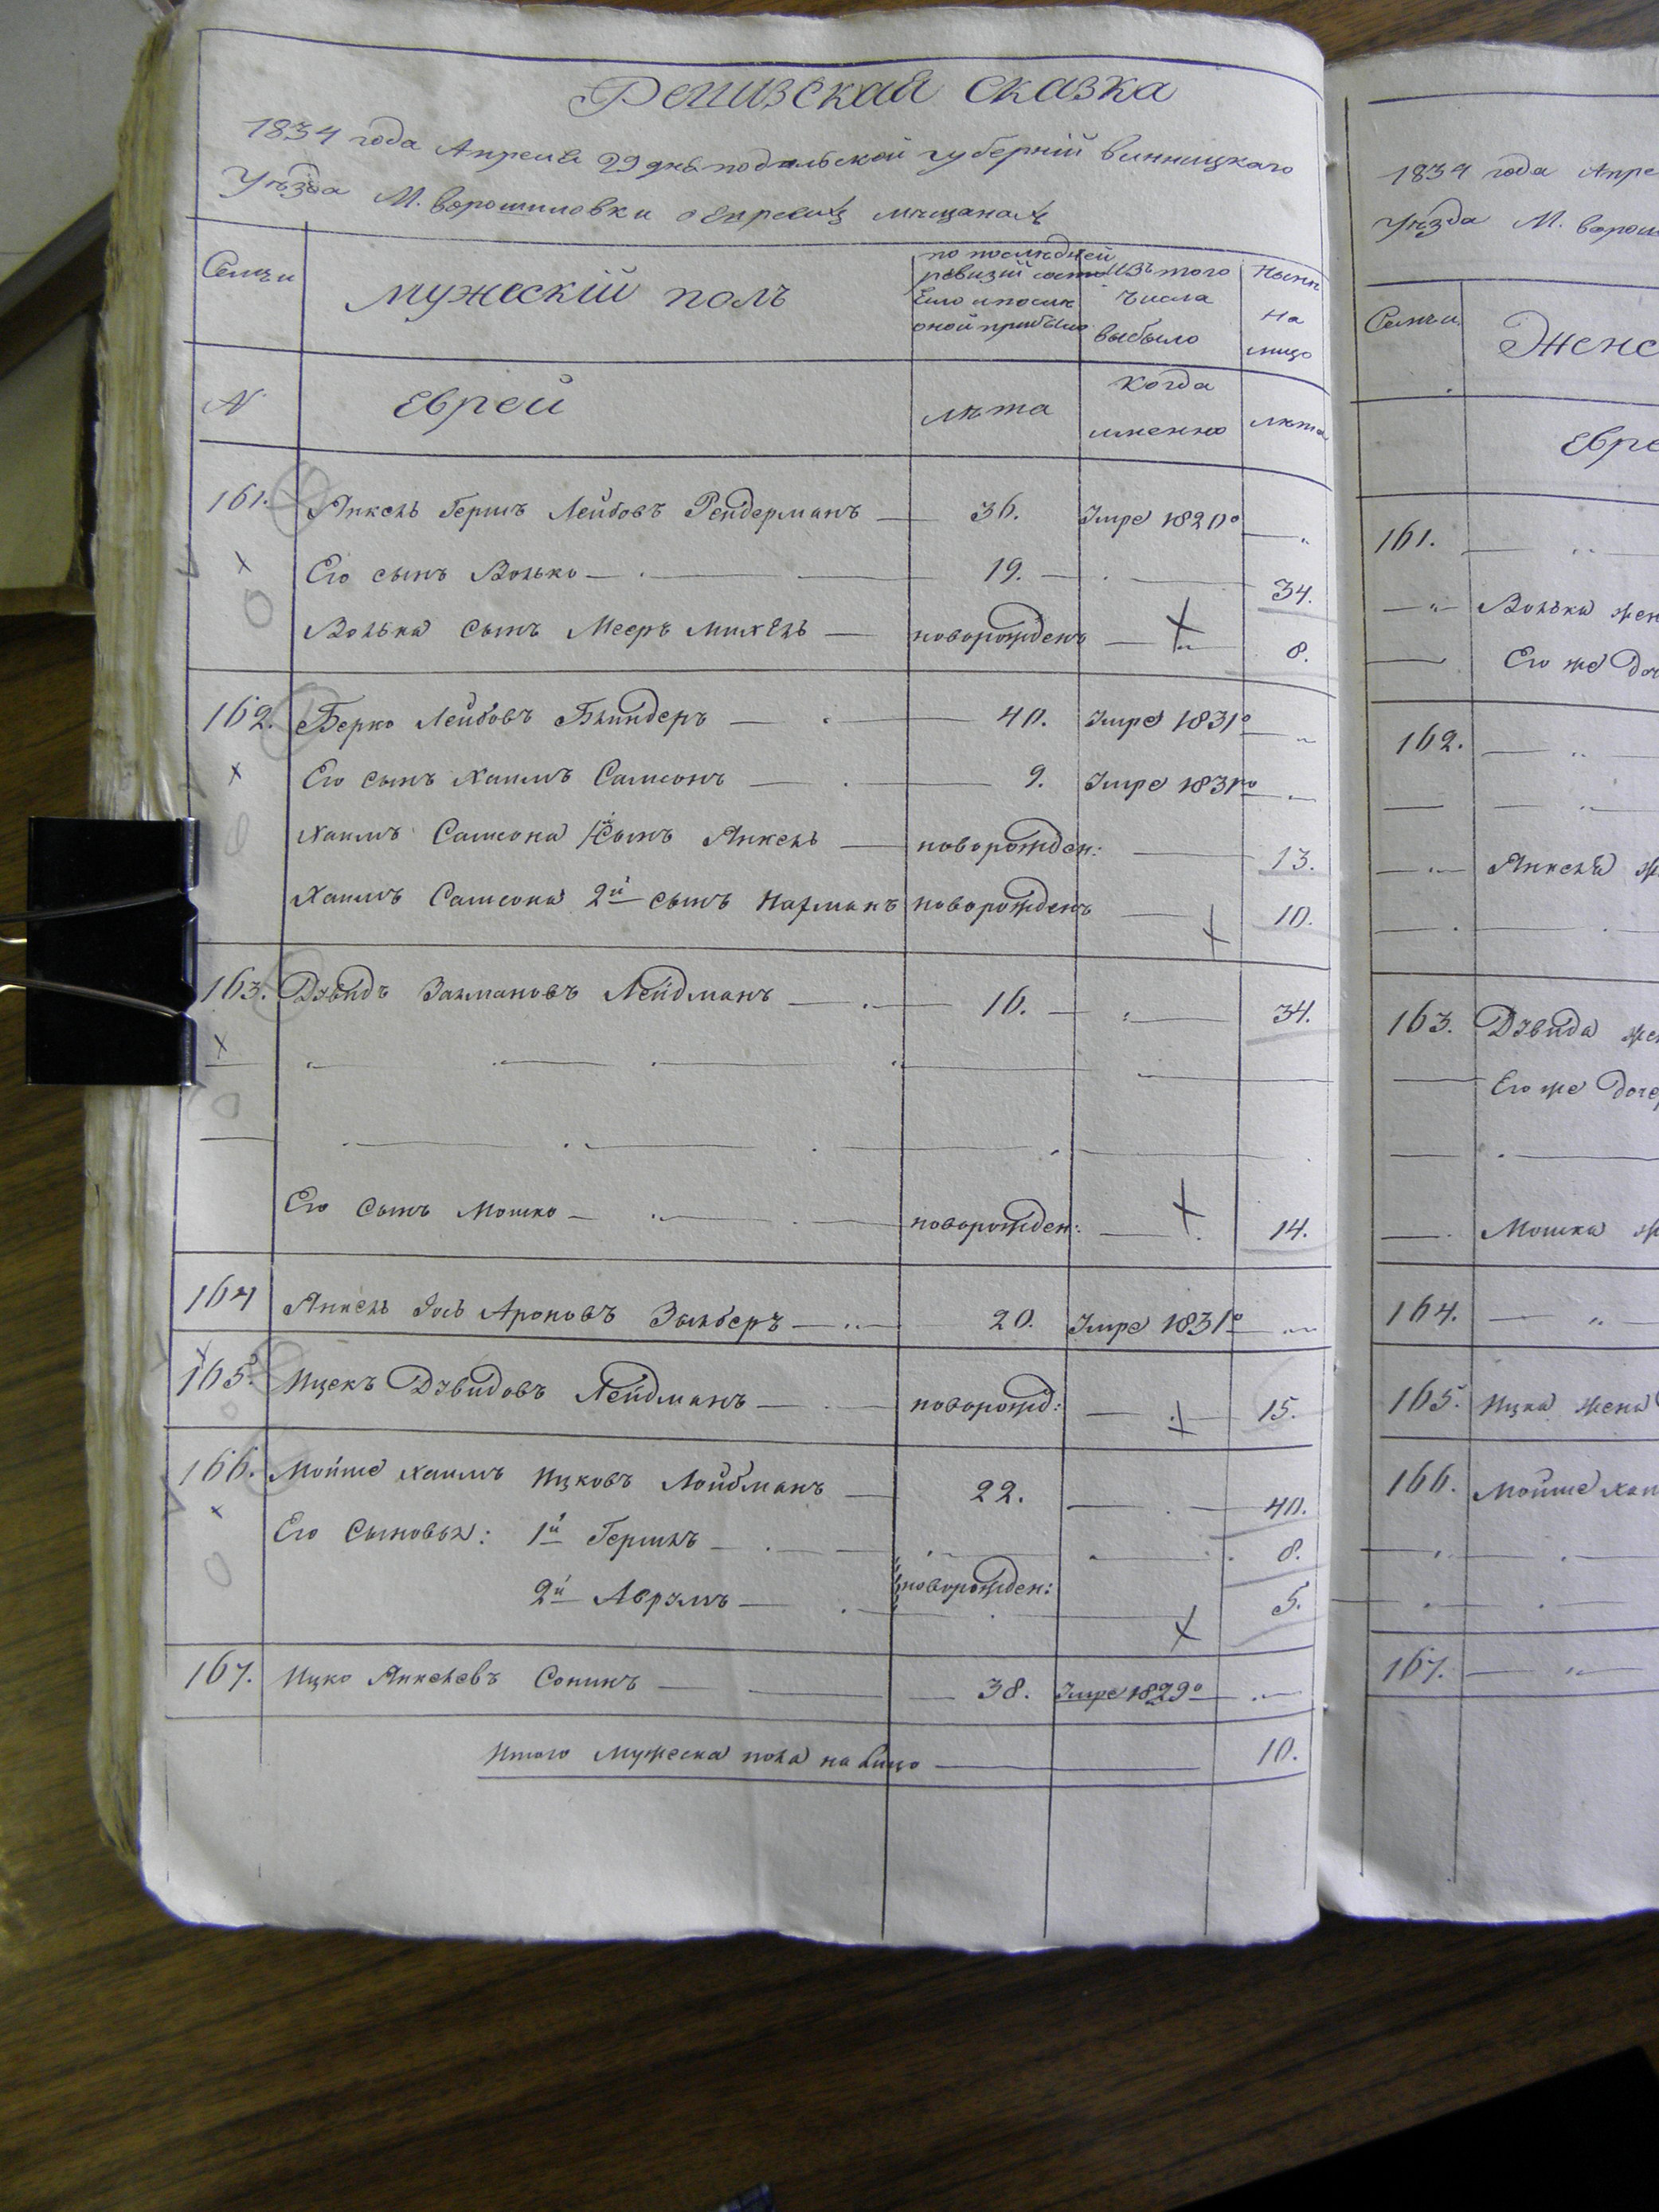 Ревизская сказка
1834 года Апреля 29 дня подольской губерній винницкаго
Уѣзда М. ворошиловки о Евреяхъ мѣщанахъ
Семьи
мужескій полъ
по последней
ревизіи состо
яло и после
оной прибыло
Изъ того
числа
выбыло
Нынѣ
на
лицо
N
Еврей
лѣта
когда
именно
лѣта
161. Янкель Гершъ Лейбовъ Рендерманъ 36. Умре 1820о
Его сынъ Волько 19. 34.
Волька сынъ Мееръ Михель новорожденъ 8.
162. Берко Лейбовъ Блиндеръ 40. Умре 1831о
Его сынъ Хаимъ Самсонъ 9. Умре 1831го
Хаимъ Самсона 1й сынъ Янкель новорожден: 13.
Хаимъ Самсона 2й сынъ Нахманъ новорожденъ 10.
163. Дувидъ Залмановъ Лейдманъ 16. 34.
Его сынъ Мошко новорожден: 14.
164 Янкель Іось Ароновъ Зильберъ 20. Умре 1831о
165. Ицекъ Дувидовъ Лейдманъ новорожд: 15.
166. Мойше Хаимъ Ицковъ Лойбманъ 22. 40.
Его Сыновья: 1й Гершль 8.
2й Аврумъ новорожден: 5.
167. Ицко Янкелевъ Сопинъ 38. Умре 1829о
Итого Мужеска пола на Лицо 10.
1834 года Апре
Уѣзда М. ворош
Семьи
Женс
Евре
161.
Волька жен
Его же Доч
162.
Янкеля ж
163. Дувида же
Его же Доче
Мошка ж
164.
165. Ицка жена
166. Мойше Хаи
167.